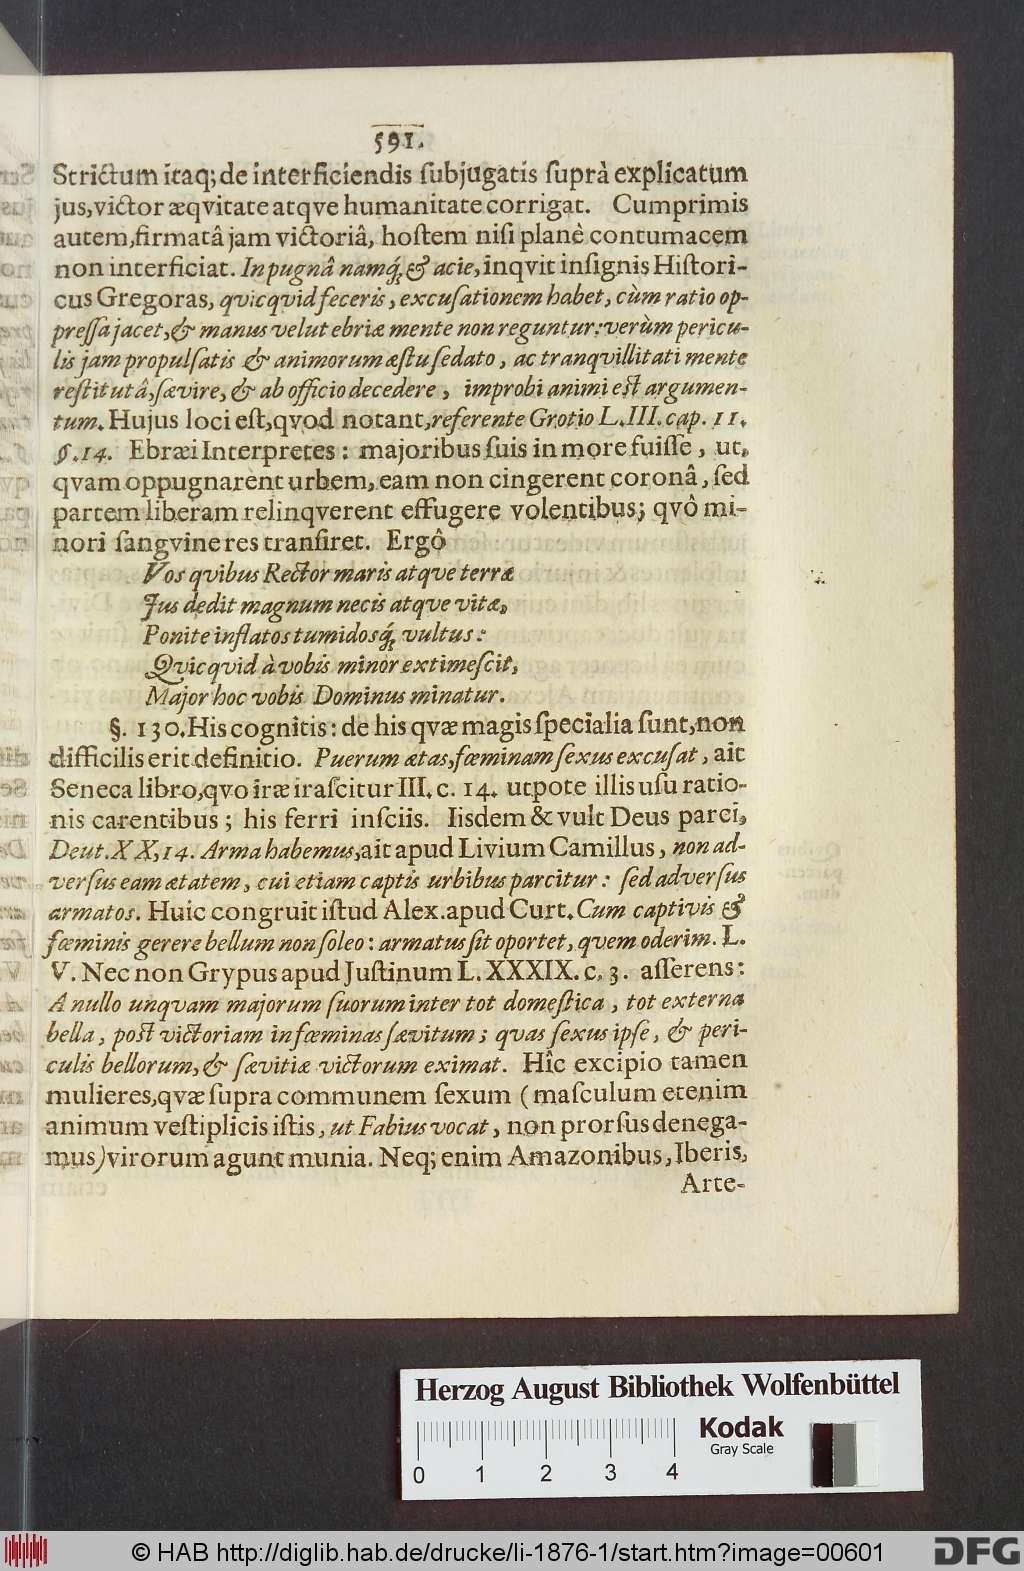 591.
Strictum itaq; de interficiendis ſubjugatis ſuprà explicatum
jus, victor æqvitate atqve humanitate corrigat. Cumprimis
autem, firmatâ jam victoriâ, hoſtem niſi planè contumacem
non interficiat. In pugnâ namq́ꝫ & acie, inqvit inſignis Hiſtori-
cus Gregoras, qvicqvid feceris, excuſationem habet, cùm ratio op-
preſſa jacet, & manus velut ebriæ mente non reguntur: verùm pericu-
lis jam propulſatis & animorum æſtu ſedato, ac tranqvillitati mente
reſtitutâ, ſævire, & ab officio decedere, improbi animi eſt argumen-
tum. Hujus loci eſt, qvod notant, referente Grotio L. III. cap. 11.
§. 14. Ebræi Interpretes: majoribus ſuis in more fuiſſe, ut,
qvam oppugnarent urbem, eam non cingerent coronâ, ſed
partem liberam relinqverent effugere volentibus; qvô mi-
nori ſangvine res tranſiret. Ergô
Vos qvibus Rector maris atqve terræ
Jus dedit magnum necis atqve vitæ,
Ponite inflatos tumidosq́ꝫ vultus:
Qvicqvid à vobis minor extimeſcit,
Major hoc vobis Dominus minatur.
§. 130. His cognitis: de his qvæ magis ſpecialia ſunt, non
difficilis erit definitio. Puerum ætas, fœminam ſexus excuſat, ait
Seneca libro, qvo iræ iraſcitur III. c. 14. utpote illis uſu ratio-
nis carentibus; his ferri inſciis. Iisdem & vult Deus parci,
Deut. XX, 14. Arma habemus, ait apud Livium Camillus, non ad-
verſus eam ætatem, cui etiam captis urbibus parcitur: ſed adverſus
armatos. Huic congruit iſtud Alex. apud Curt. Cum captivis &
fœminis gerere bellum non ſoleo: armatus ſit oportet, qvem oderim. L.
V. Nec non Grypus apud Juſtinum L. XXXIX. c. 3. aſſerens:
A nullo unqvam majorum ſuorum inter tot domeſtica, tot externa
bella, poſt victoriam in fœminas ſævitum; qvas ſexus ipſe, & peri-
culis bellorum, & ſævitiæ victorum eximat. Hîc excipio tamen
mulieres, qvæ ſupra communem ſexum (maſculum etenim
animum veſtiplicis iſtis, ut Fabius vocat, non prorſus denega-
mus) virorum agunt munia. Neq; enim Amazonibus, Iberis,
Arte-
Herzog August Bibliothek Wolfenbüttel
Kodak
Gray Scale
0 1 2 3 4
© HAB http://diglib.hab.de/drucke/li-1876-1/start.htm?image=00601
DFG